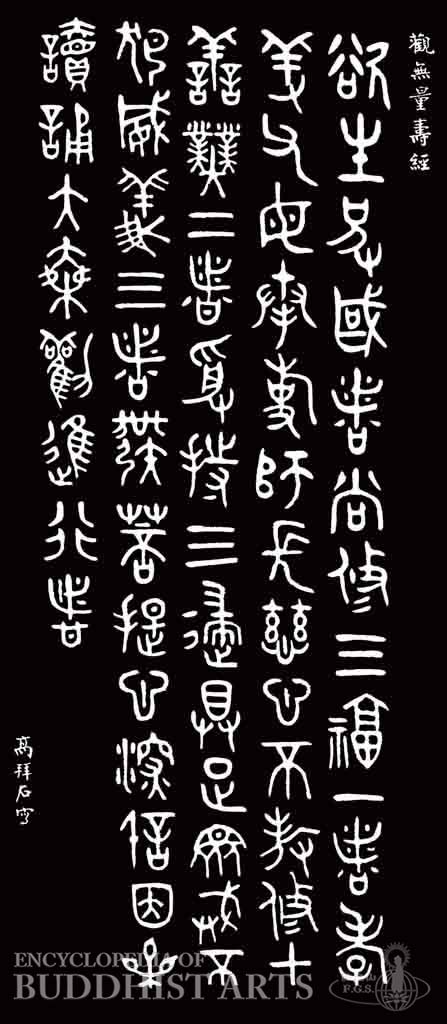 觀無量壽經
欲生彼國者當修三福一者孝
養父母奉事師長慈心不殺修十
善業二者受持三歸具足眾戒不
犯威儀三者發菩提心深信因果
讀誦大乘勸進行者
高拜石寫
ENCYCLOPEDIA OF
BUDDHIST ARTS
F.G.S.